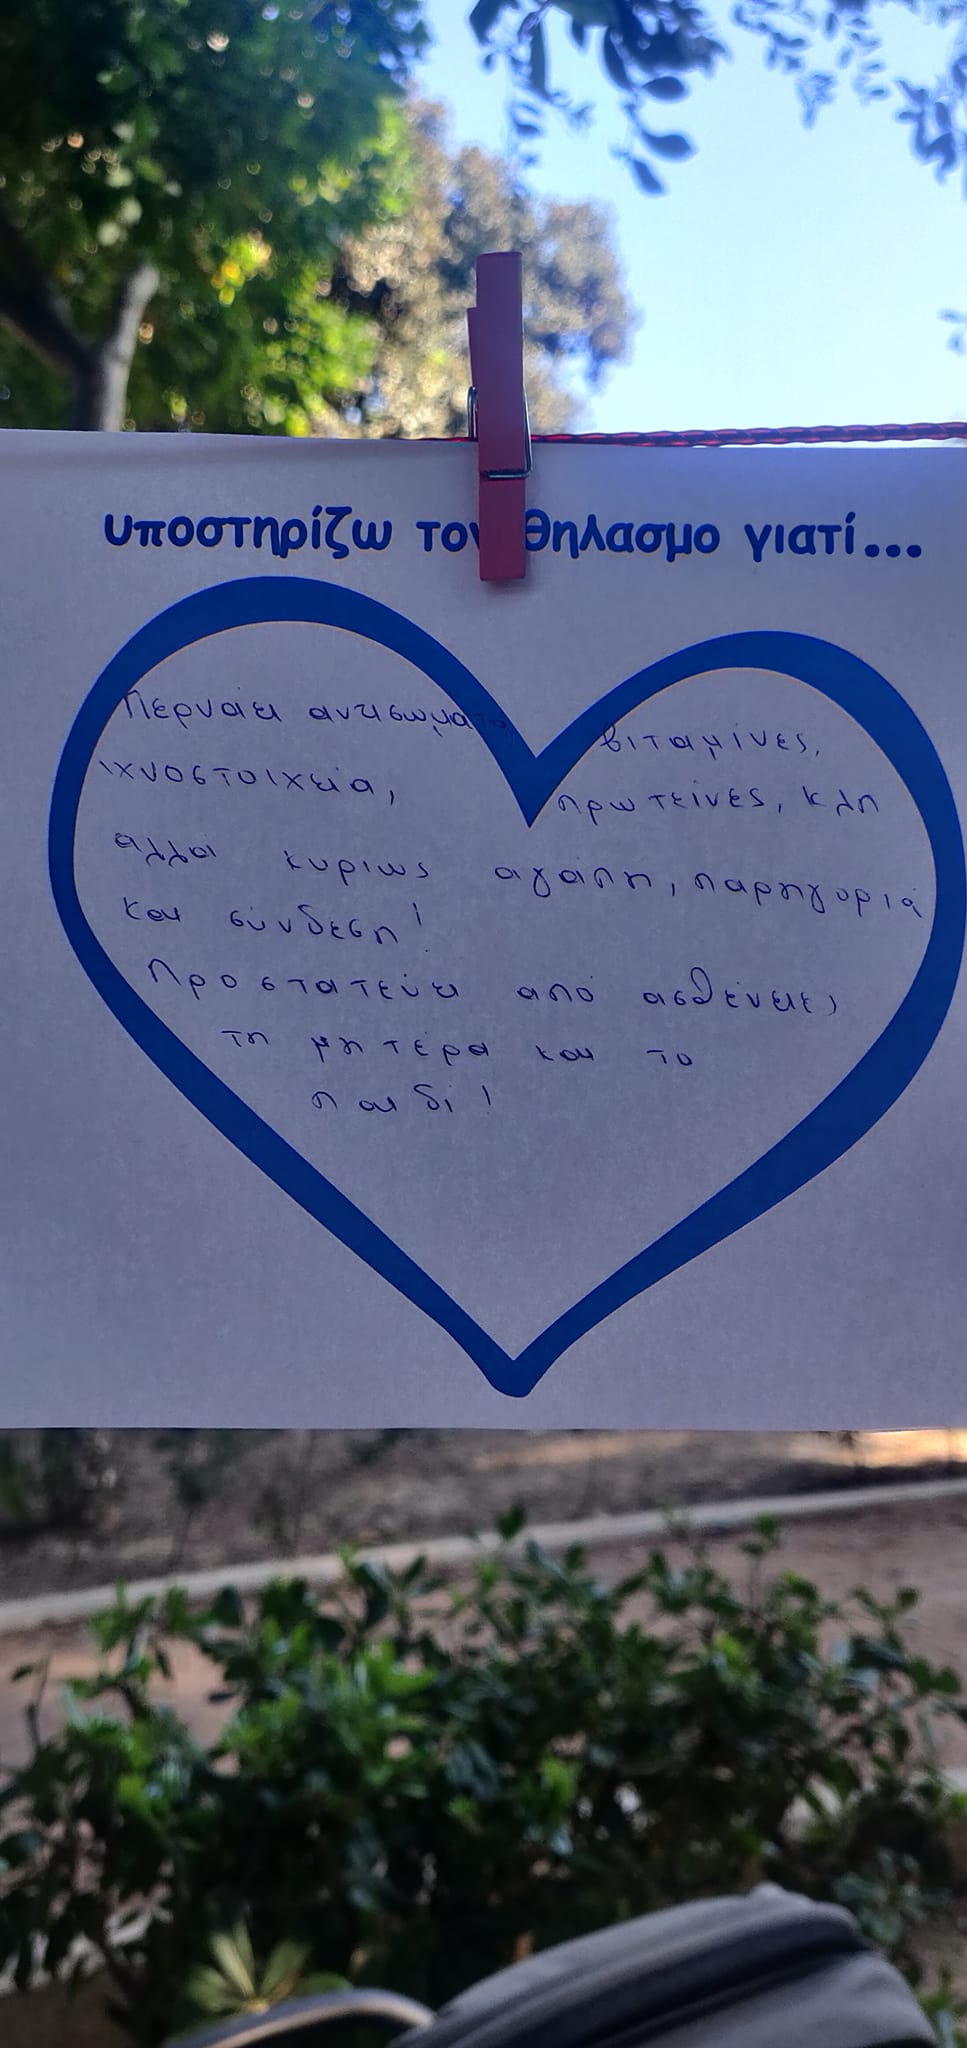 υποστηρίζω τον θηλασμο γιατί...
Περνάει αντισωματα βιταμίνες,
ιχνοστοιχεία, πρωτεϊνες, κλπ
αλλά κυρίως αγάπη, παρηγοριά
και σύνδεση!
Προστατεύει από ασθένειες
τη μητέρα και το
παιδί!